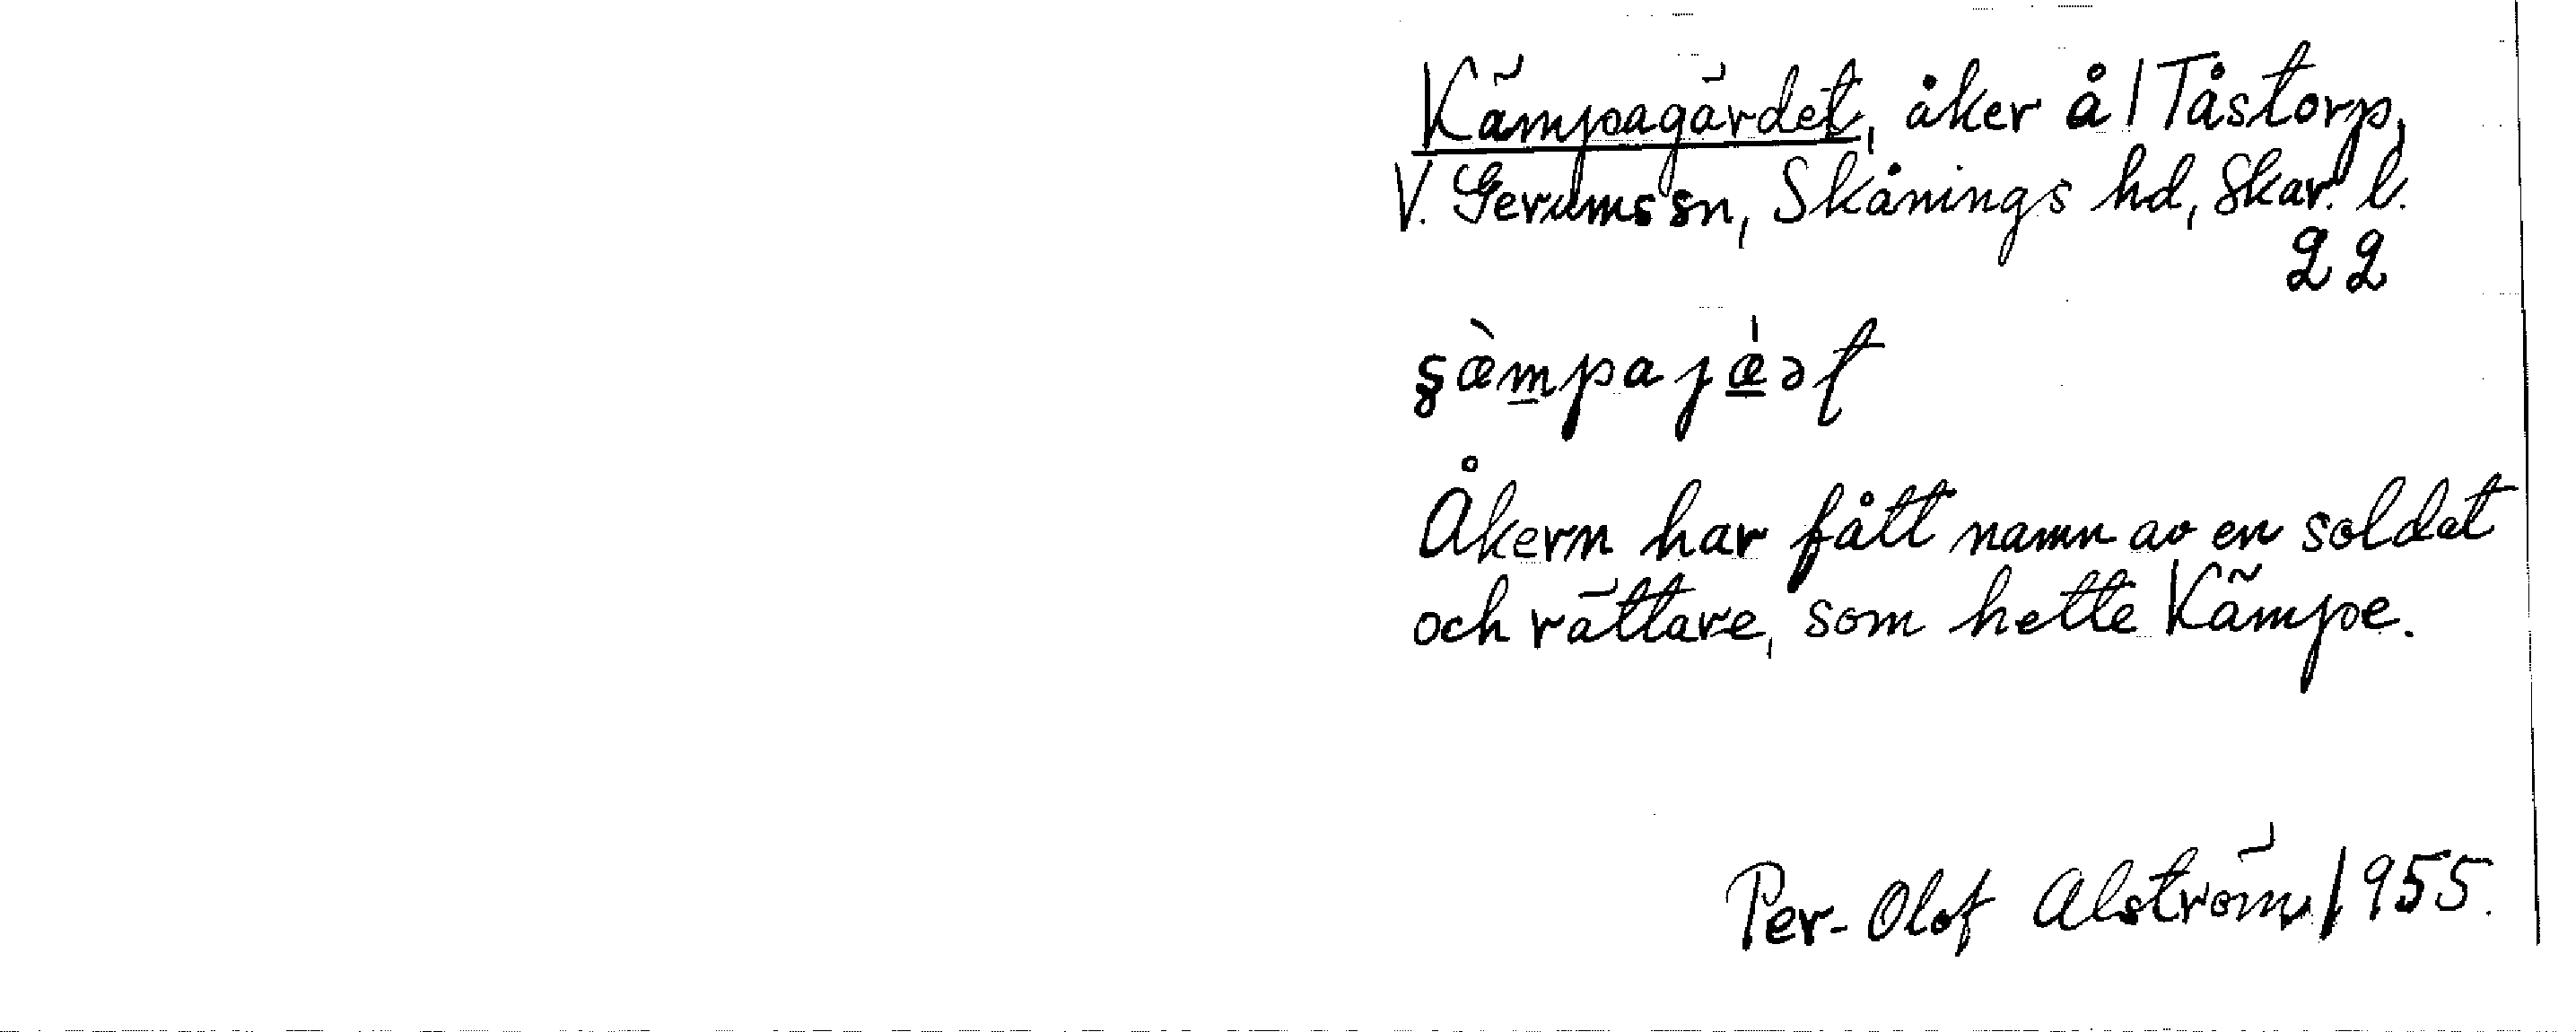 Kämpagärdet, åker å 1 Tåstorp,
V. Gerums sn, Skånings hd, Skar. l.
22
Åkern har fått namn av en soldat
och rättare, som hette Kämpe.
Per-Olof Alström 1955.